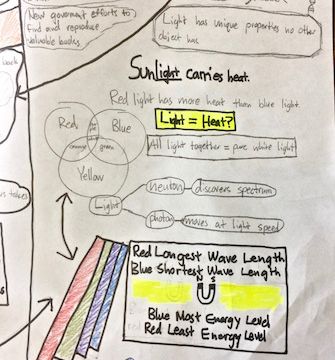 New goverment efforts to
find and reproduce
valuable bodies.
Light has unique properties no other
object has
back
Sunlight carries heat.
Red light has more heat than blue light.
Light = Heat?
Red
Blue
All light together = pure white light
orange
green
Yellow
neuton
discovers spectrum
Light
photon
moves at light speed
us takes
Red Longest Wave Length
Blue Shortest Wave Length
N S
Blue Most Energy Level
Red Least Energy Level